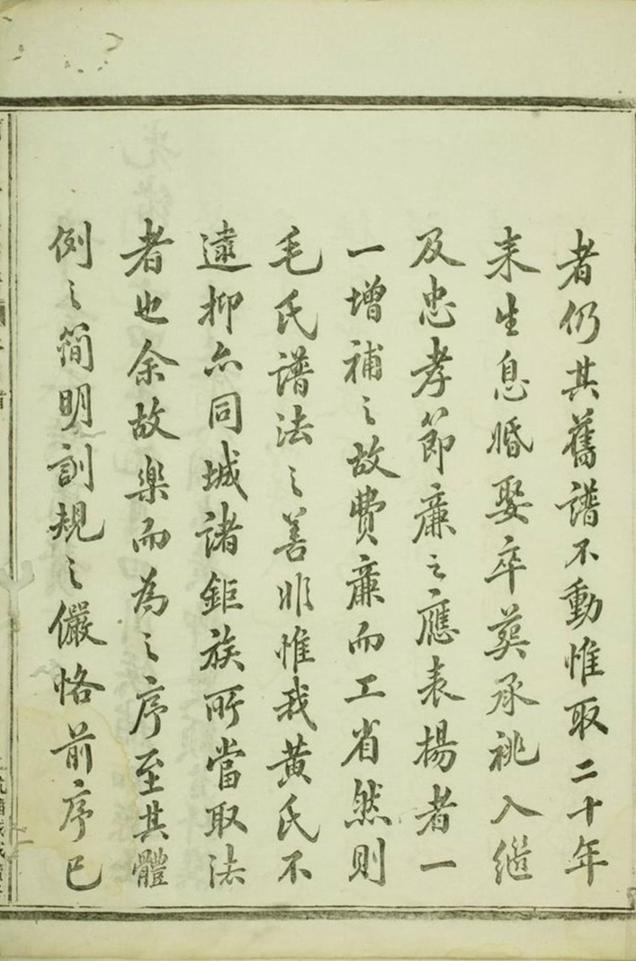 者仍其舊譜不動惟取二十年
来生息婚娶卒葬承祧入繼
及忠孝節廉之應表揚者一
一增補之故費廉而工省然則
毛氏譜法之善非惟我黃氏不
逮抑亦同城諸鉅族所當取法
者也余故樂而為之序至其體
例之簡明訓規之儼恪前序已